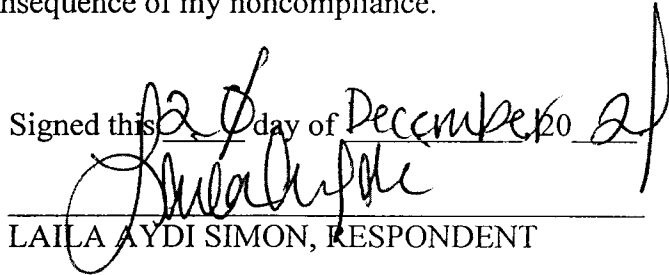 nsequence of my noncompliance.
Signed this 20 day of December 20 21
LAILA AYDI SIMON, RESPONDENT